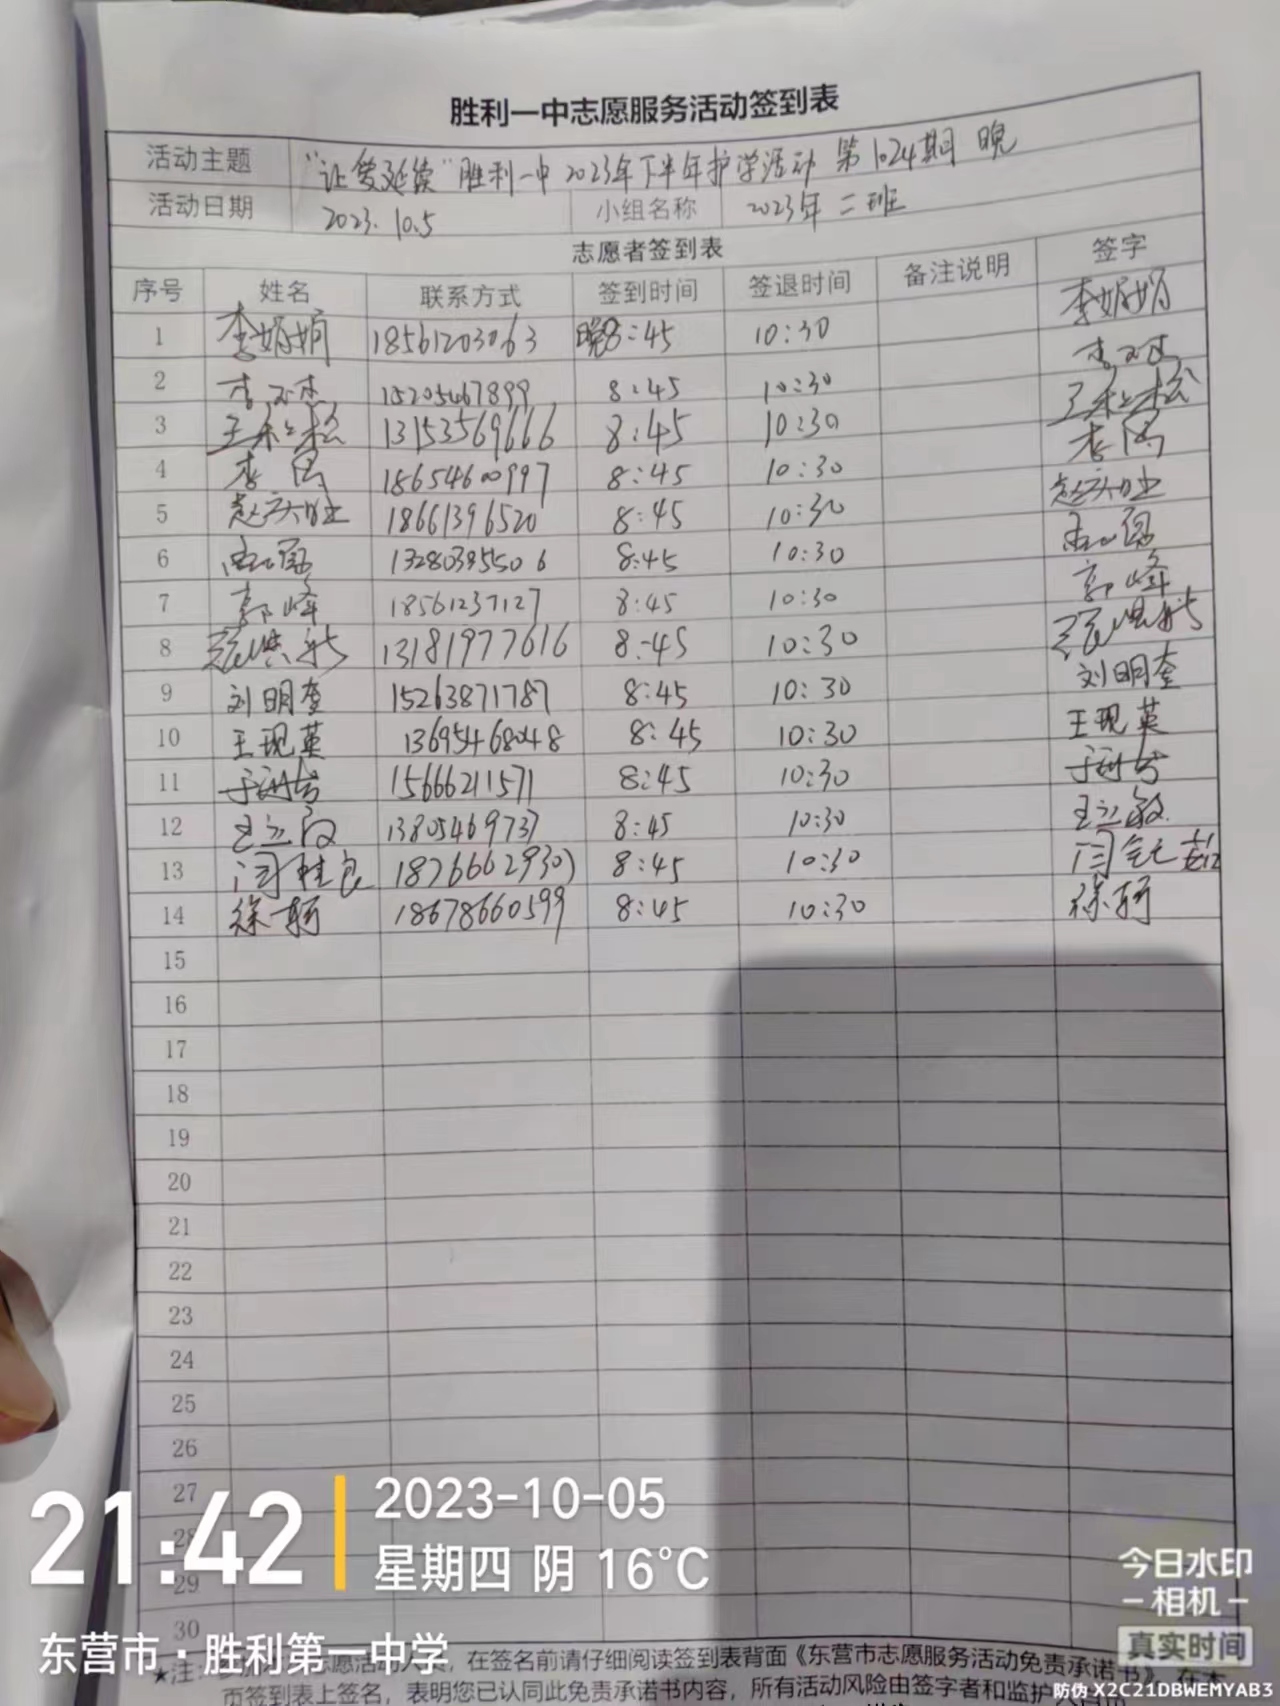 胜利一中志愿服务活动签到表
活动主题 "让爱延续"胜利一中2023年下半年护学活动 第1024期 晚
活动日期 2023.10.5 小组名称 2023年二班
志愿者签到表
序号 姓名 联系方式 签到时间 签退时间 备注说明 签字
1 李娟娟 18561203063 晚8:45 10:30 李娟娟
2 15205467899 8:45 10:30
3 13153569666 8:45 10:30
4 18654600997 8:45 10:30
5 18661396520 8:45 10:30
6 13280395506 8:45 10:30
7 郭峰 18561237127 8:45 10:30 郭峰
8 13181977616 8:45 10:30
9 刘明奎 15263871787 8:45 10:30 刘明奎
10 王现英 13695468048 8:45 10:30 王现英
11 15666211571 8:45 10:30
12 王立敏 13805469737 8:45 10:30 王立敏
13 8:45 10:30
14 徐轲 18678660599 8:45 10:30 徐轲
15
16
17
18
19
20
21
22
23
24
25
26
27
28
29
30
21:42
2023-10-05
星期四 阴 16°C
东营市·胜利第一中学
★注: 在签名前请仔细阅读签到表背面《东营市志愿服务活动免责承诺书》,在本
页签到表上签名,表明您已认同此免责承诺书内容,所有活动风险由签字者和监护
今日水印
-相机-
真实时间
防伪 X2C21DBWEMYAB3